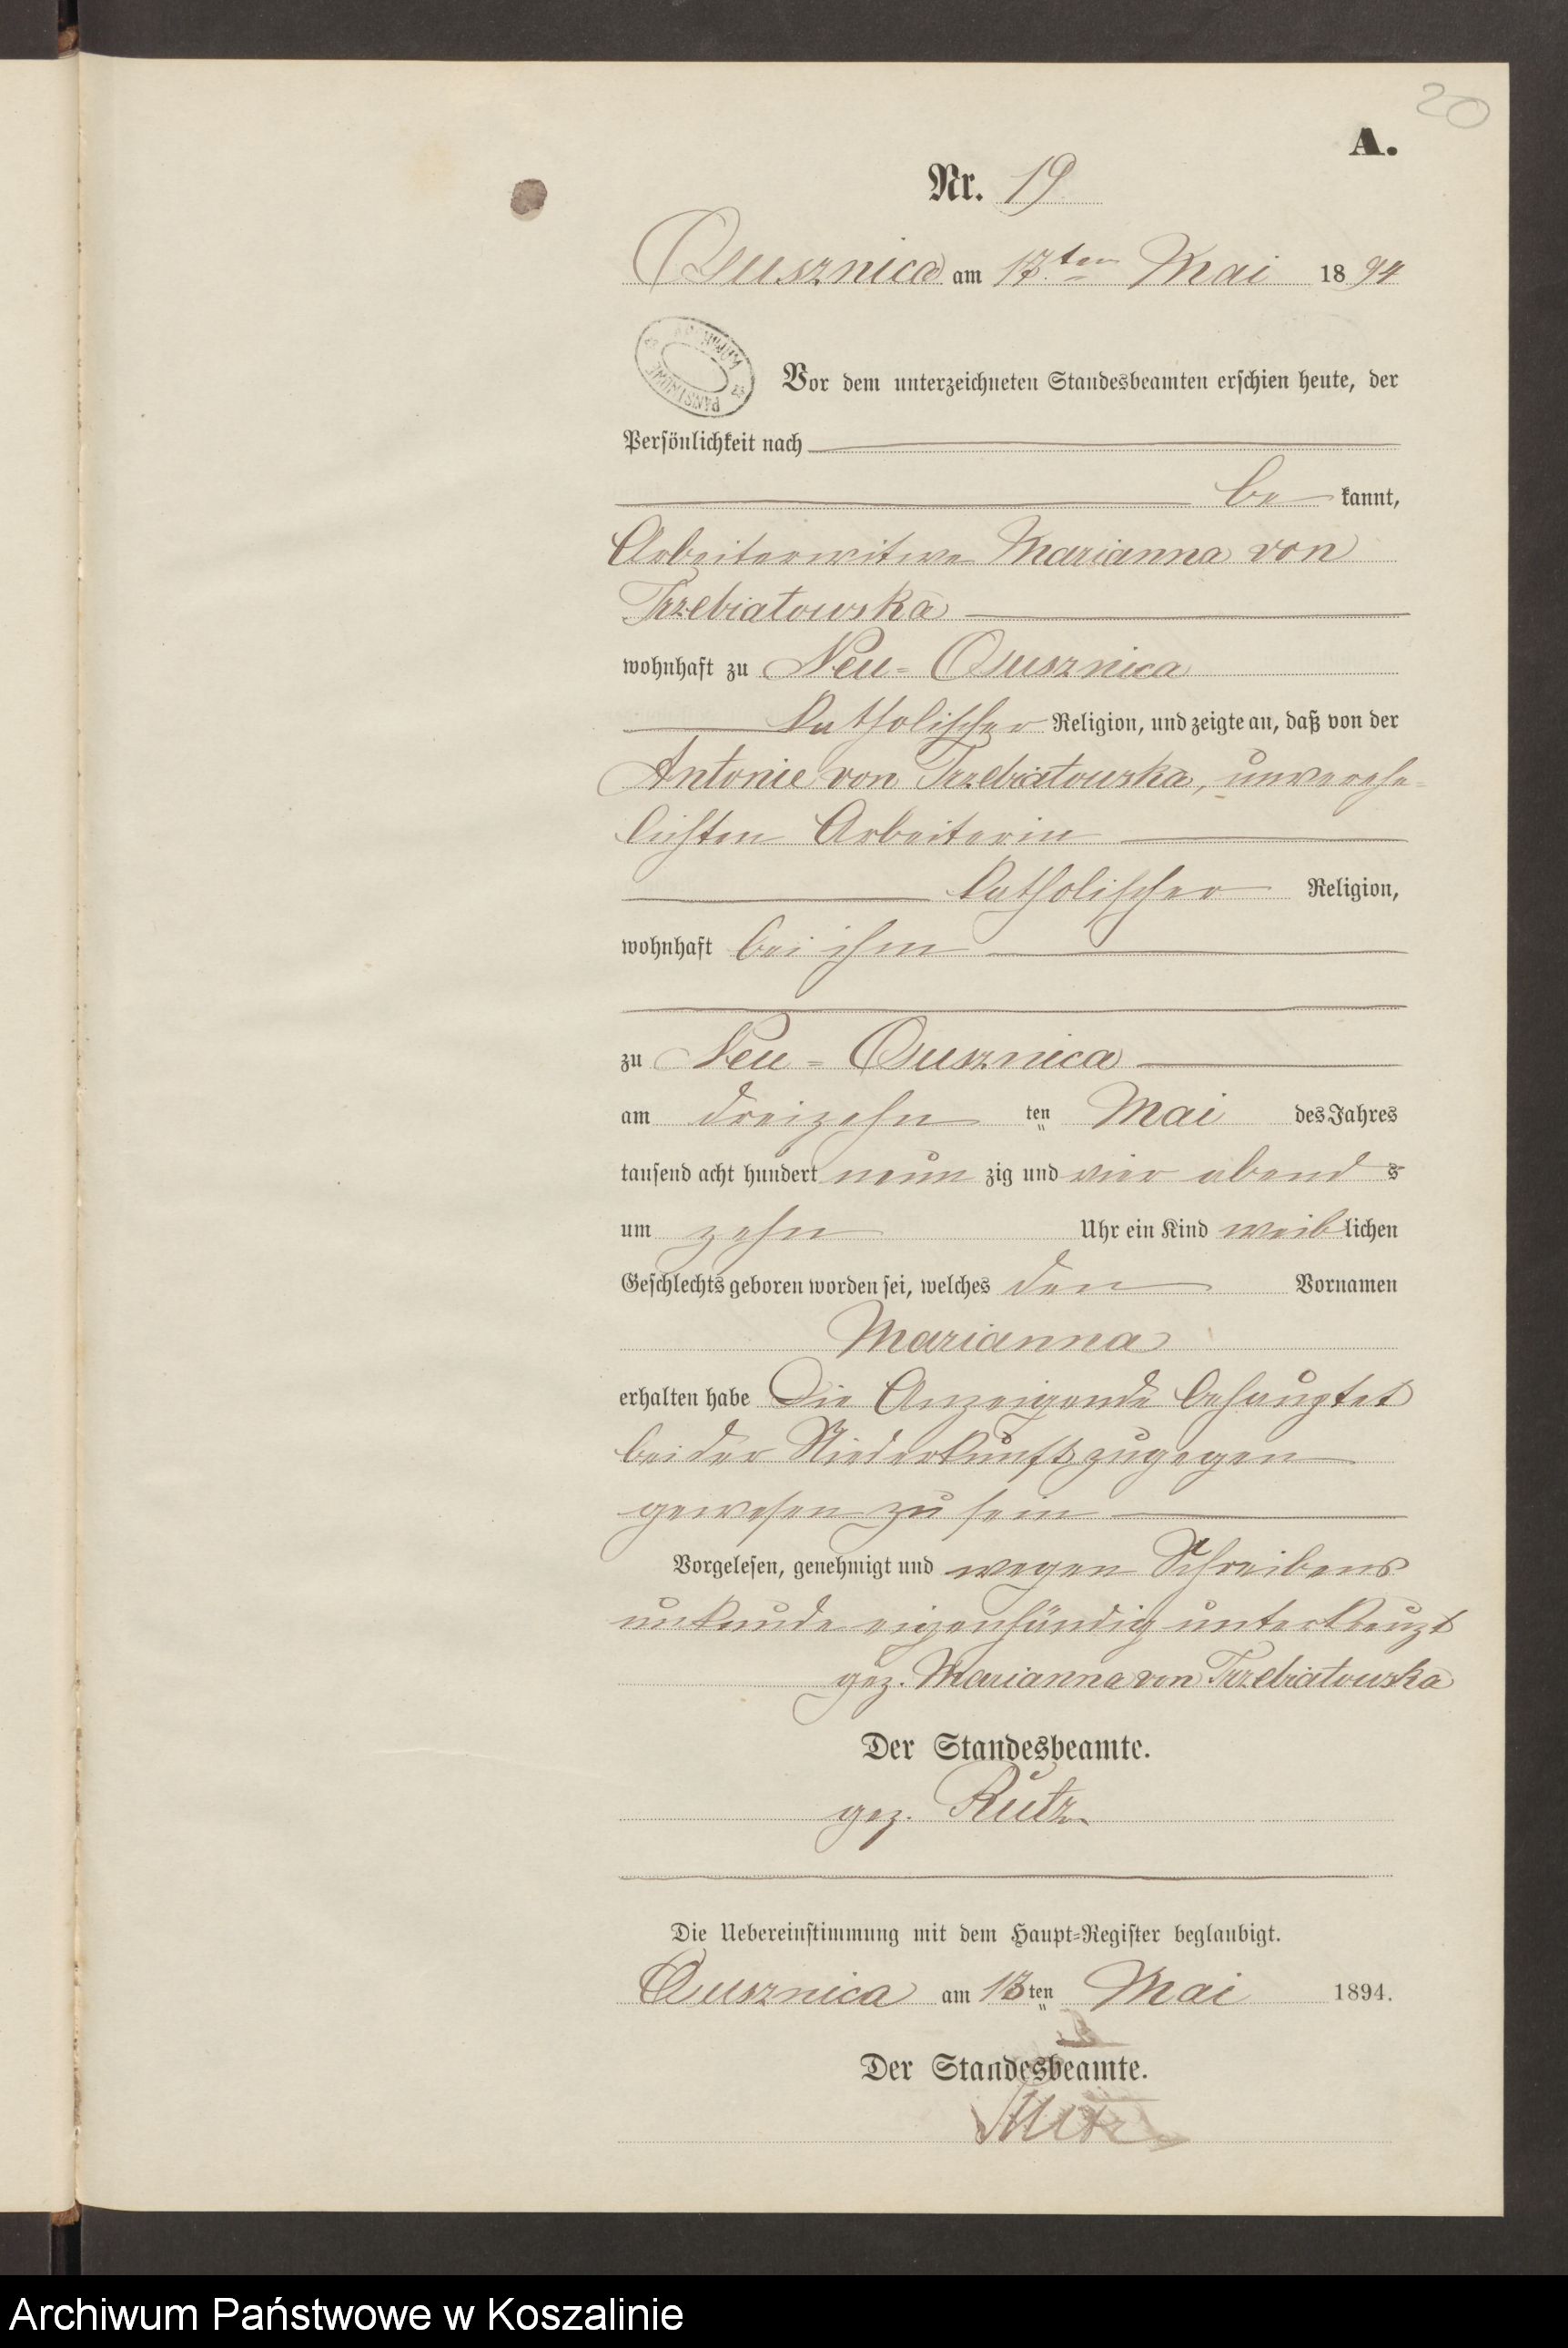 20
A.
Nr. 19
Ossusznica am ten Mai 1894
Vor dem unterzeichneten Standesbeamten erschien heute, der
Persönlichkeit nach
be kannt,
Arbeiterwitwe Marianna von
Trzebiatowska
wohnhaft zu Neu-
katholischer Religion, und zeigte an, daß von der
Antonie von Trzebiatowska, unverehe-
lichten Arbeiterin
katholischer Religion,
wohnhaft bei ihm
zu Neu-
am dreizehn ten Mai des Jahres
tausend acht hundert neun zig und vier abend s
um zehn Uhr ein Kind weib lichen
Geschlechts geboren worden sei, welches den Vornamen
Marianna
erhalten habe Die Anzeigende behauptet
bei der Niederkunft zugegen
gewesen zu sein
Vorgelesen, genehmigt und wegen Schreibens
unkunde eigenhändig unterkreuzt
gez. Marianna von Trzebiatowska
Der Standesbeamte.
gez. Rutz
Die Uebereinstimmung mit dem Haupt-Register beglaubigt.
am ten Mai 1894.
Der Standesbeamte.
Rutz
Archiwum Państwowe w Koszalinie